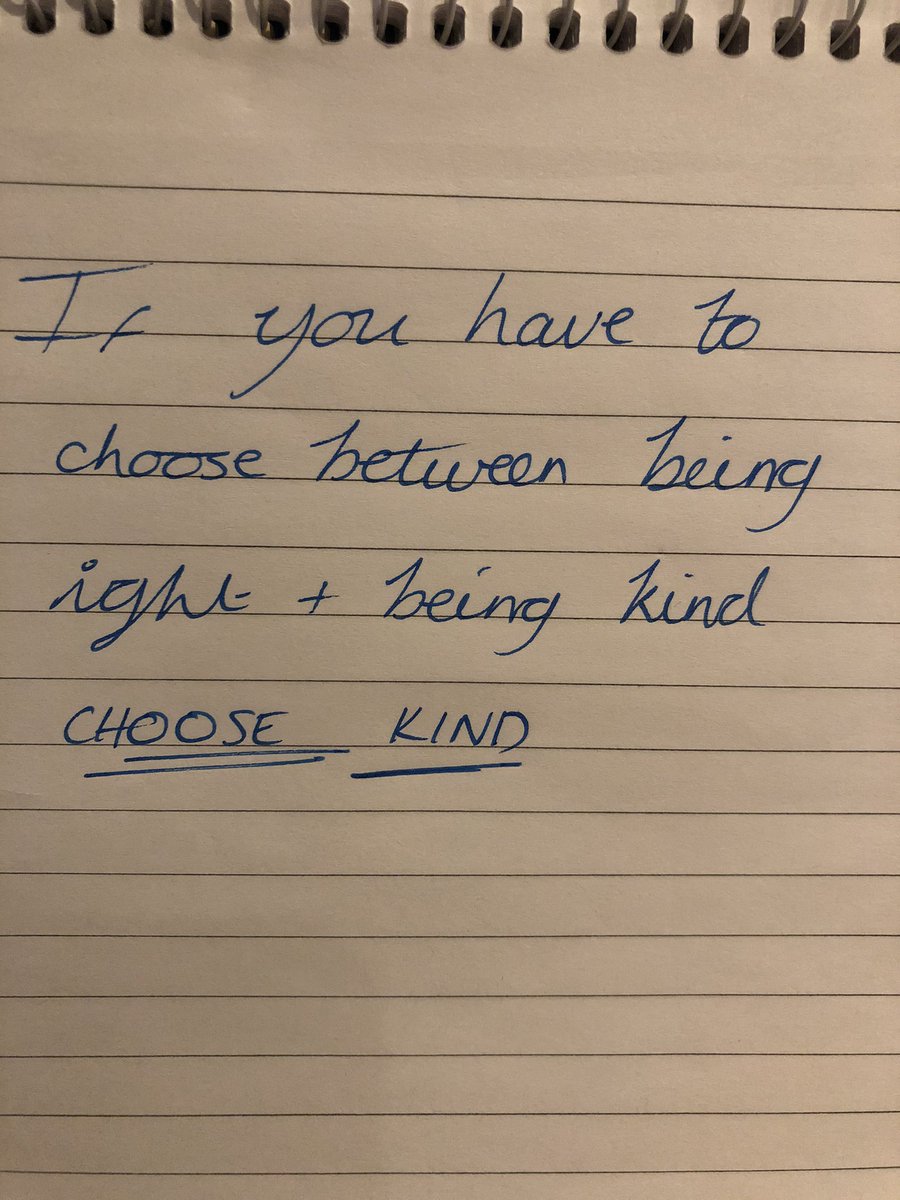 If you have to
choose between being
right + being kind
CHOOSE KIND